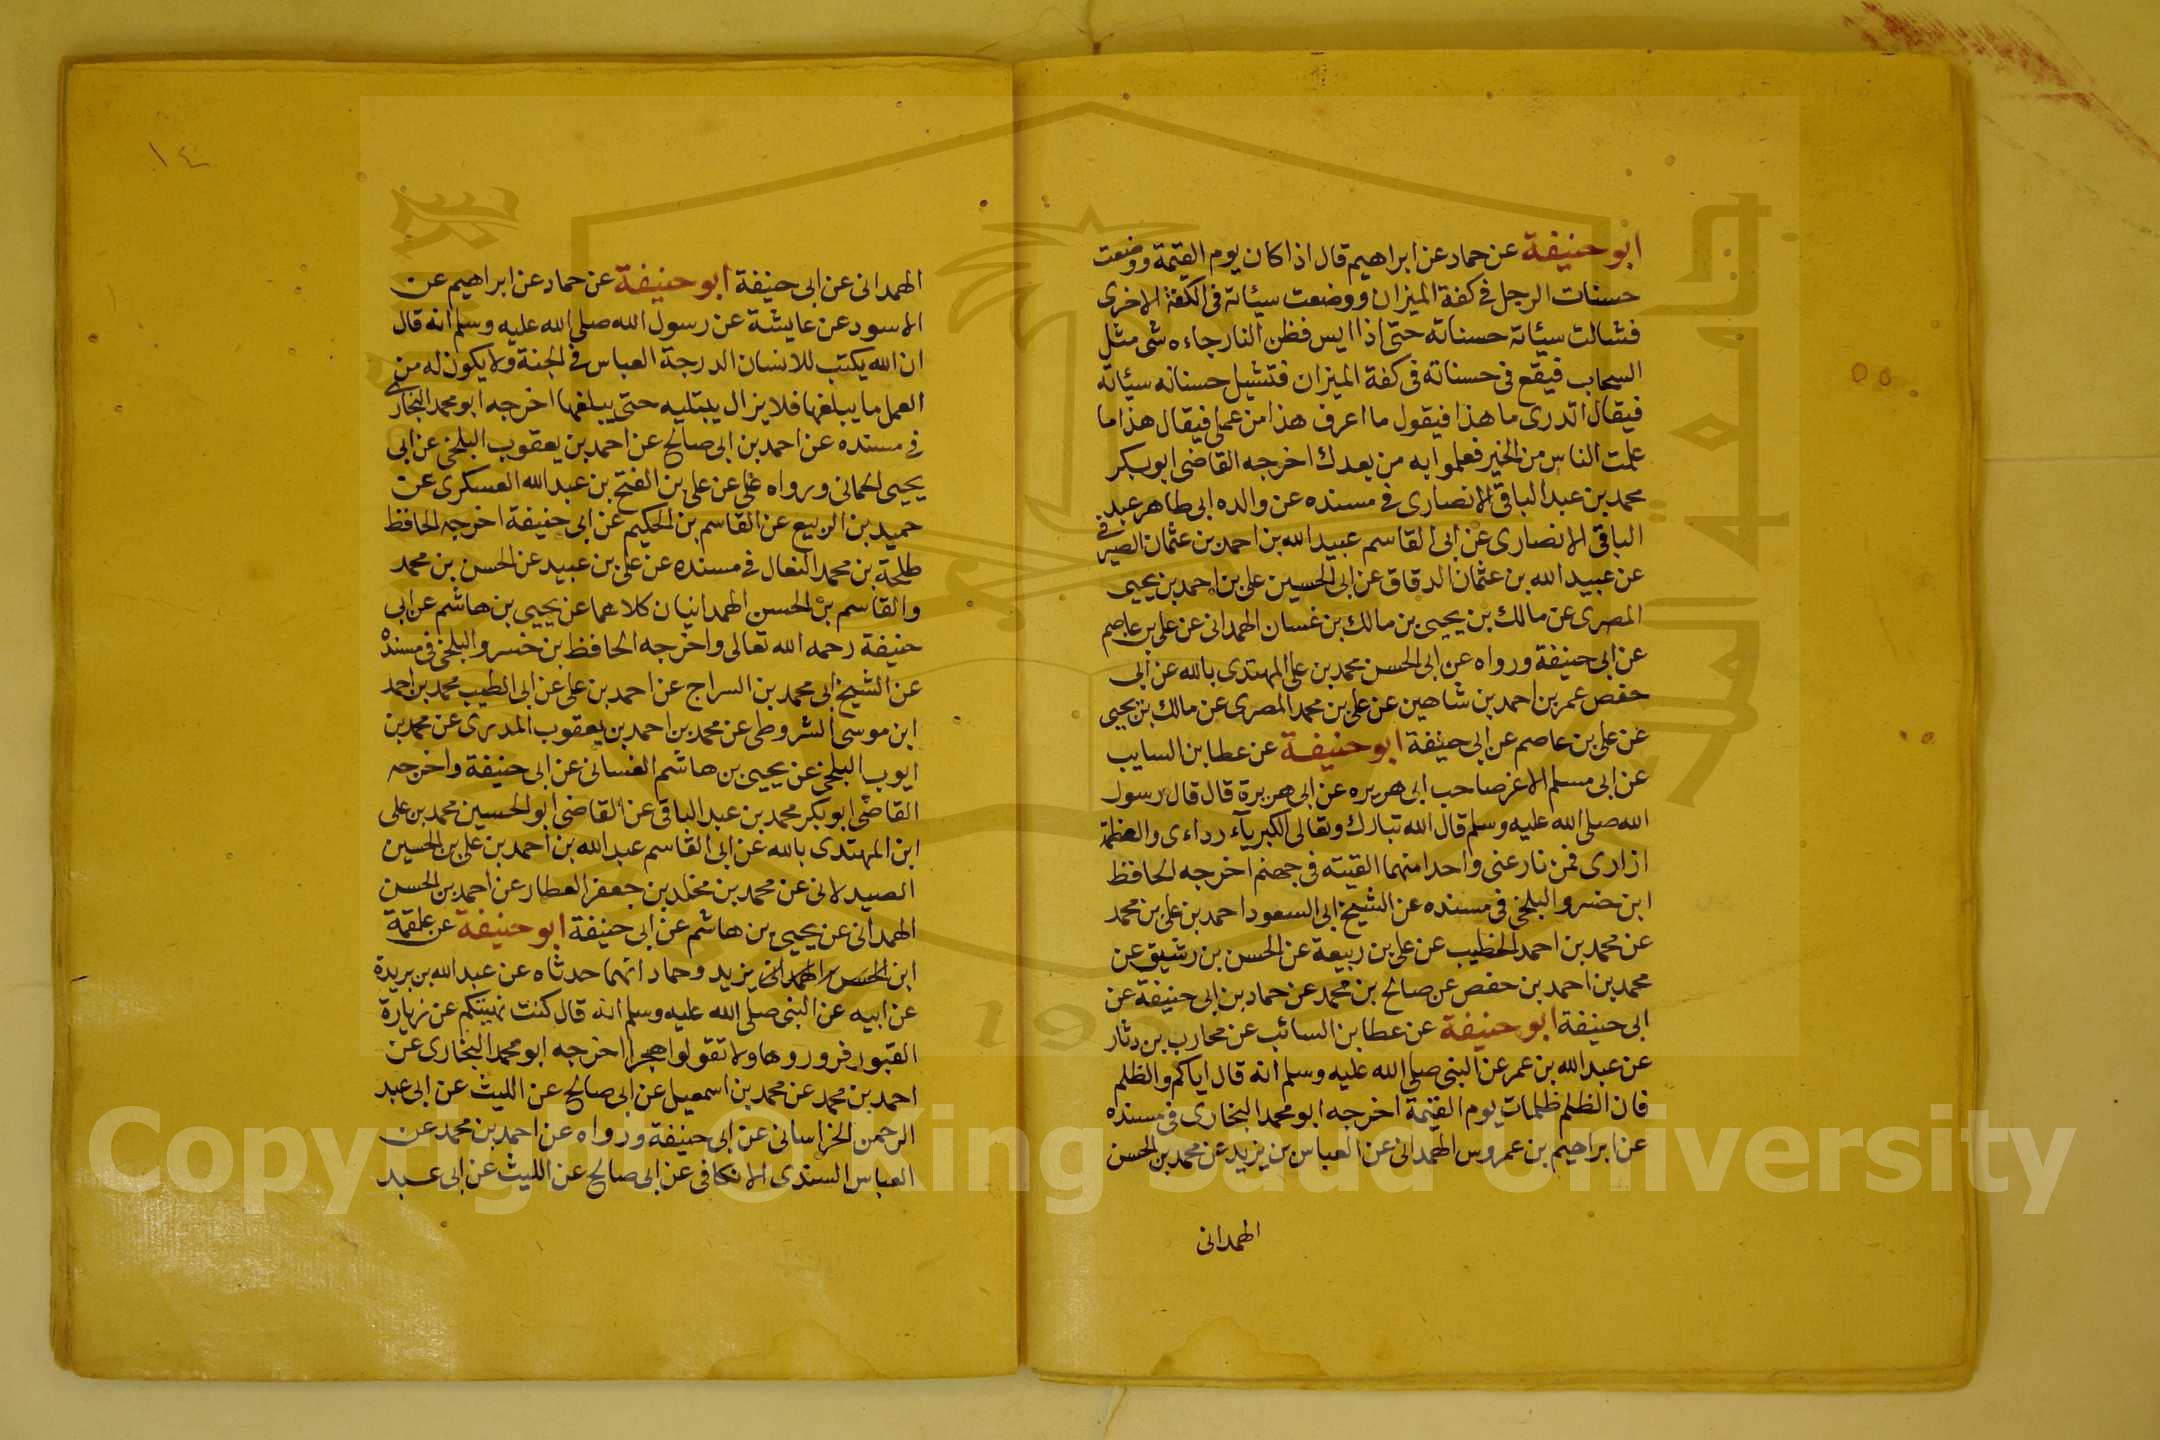 ابو حنيفة عن حماد عن ابراهيم قال اذا كان يوم القيمة ووضعت
حسنات الرجل في كفة الميزان ووضعت سيئاته في الكفة الاخرى
فشالت سيئاته حسناته حتى اذا ايس فظن النار جاءه شئ مثل
السحاب فيقع في حسناته في كفة الميزان فتشيل حسناته سيئاته
فيقال اتدرى ما هذا فيقول ما اعرف هذا من عملي فيقال هذا ما
علمت الناس من الخير فعلموا به من بعدك اخرجه القاضى ابو بكر
محمد بن عبد الباقي الانصارى في مسنده عن والده ابى طاهر عبد
الباقي الانصارى عن ابى القاسم عبيد الله بن احمد بن عثمان الصيرفي
عن عبيد الله بن عثمان الدقاق عن ابى الحسين على بن احمد بن يحيى
المصرى عن مالك بن يحيى بن مالك بن غسان الهمدانى عن على بن عاصم
عن ابى حنيفة ورواه عن ابى الحسن محمد بن على المهتدى بالله عن ابى
حفص عمر بن احمد بن شاهين عن على بن محمد المصرى عن مالك بن يحيى
عن على بن عاصم عن ابى حنيفة ابو حنيفة عن عطا بن السايب
عن ابى مسلم الاغر صاحب ابى هريره عن ابى هريرة قال قال رسول
الله صلى الله عليه وسلم قال الله تبارك وتعالى الكبرياء رداءى والعظمة
ازارى فمن نازعنى واحدا منهما القيته في جهنم اخرجه الحافظ
ابن خسرو البلخى في مسنده عن الشيخ ابى السعود احمد بن على بن محمد
عن محمد بن احمد الخطيب عن على بن ربيعة عن الحسن بن رشيق عن
محمد بن احمد بن حفص عن صالح بن محمد عن حماد بن ابى حنيفة عن
ابى حنيفة ابو حنيفة عن عطا بن السائب عن محارب بن دثار
عن عبد الله بن عمر عن النبى صلى الله عليه وسلم انه قال اياكم والظلم
فان الظلم ظلمات يوم القيمة اخرجه ابو محمد البخارى في مسنده
عن ابراهيم بن عمروس الهمدانى عن العباس بن يزيد عن محمد بن الحسن
الهمدانى
١٤
الهمدانى عن ابى حنيفة ابو حنيفة عن حماد عن ابراهيم عن
الاسود عن عايشة عن رسول الله صلى الله عليه وسلم انه قال
ان الله يكتب للانسان الدرجة العباس في الجنة ولا يكون له من
العمل ما يبلغها فلا يزال يبتليه حتى يبلغها اخرجه ابو محمد البخارى
في مسنده عن احمد بن ابى صالح عن احمد بن يعقوب البلخى عن ابى
يحيى الحمانى ورواه عن على بن الفتح بن عبد الله العسكرى عن
حميد بن الربيع عن القاسم بن الحكيم عن ابى حنيفة اخرجه الحافظ
طلحة بن محمد النعال في مسنده عن على بن عبيد عن الحسن بن محمد
والقاسم بن الحسن الهمدانيان كلاهما عن يحيى بن هاشم عن ابى
حنيفة رحمه الله تعالى واخرجه الحافظ بن خسرو البلخى في مسنده
عن الشيخ ابى محمد بن السراج عن احمد بن على عن ابى الطيب محمد بن احمد
ابن موسى الشروطى عن محمد بن احمد بن يعقوب عن محمد بن
ايوب البلخى عن يحيى بن هاشم الغسانى عن ابى حنيفة واخرجه
القاضى ابو بكر محمد بن عبد الباقى عن القاضى ابو الحسين محمد بن على
ابن المهتدى بالله عن ابى القاسم عبد الله بن احمد بن على بن الحسين
الصيدلانى عن محمد بن مخلد بن جعفر العطار عن احمد بن الحسن
الهمدانى عن يحيى بن هاشم عن ابى حنيفة ابو حنيفة عن علقمة
ابن يزيد وحماد انهما حدثاه عن عبد الله بن بريدة
عن ابيه عن النبى صلى الله عليه وسلم انه قال كنت نهيتكم عن زيارة
القبور فزوروها ولا تقولوا هجرا اخرجه ابو محمد البخارى عن
احمد بن محمد عن محمد بن اسمعيل عن ابى صالح عن الليث عن ابى عبد
الرحمن الخراسانى عن ابى حنيفة ورواه عن احمد بن محمد عن
العباس السندى الانكافى عن ابى صالح عن الليث عن ابى عبد
Copyright © King Saud University
جامعة الملك